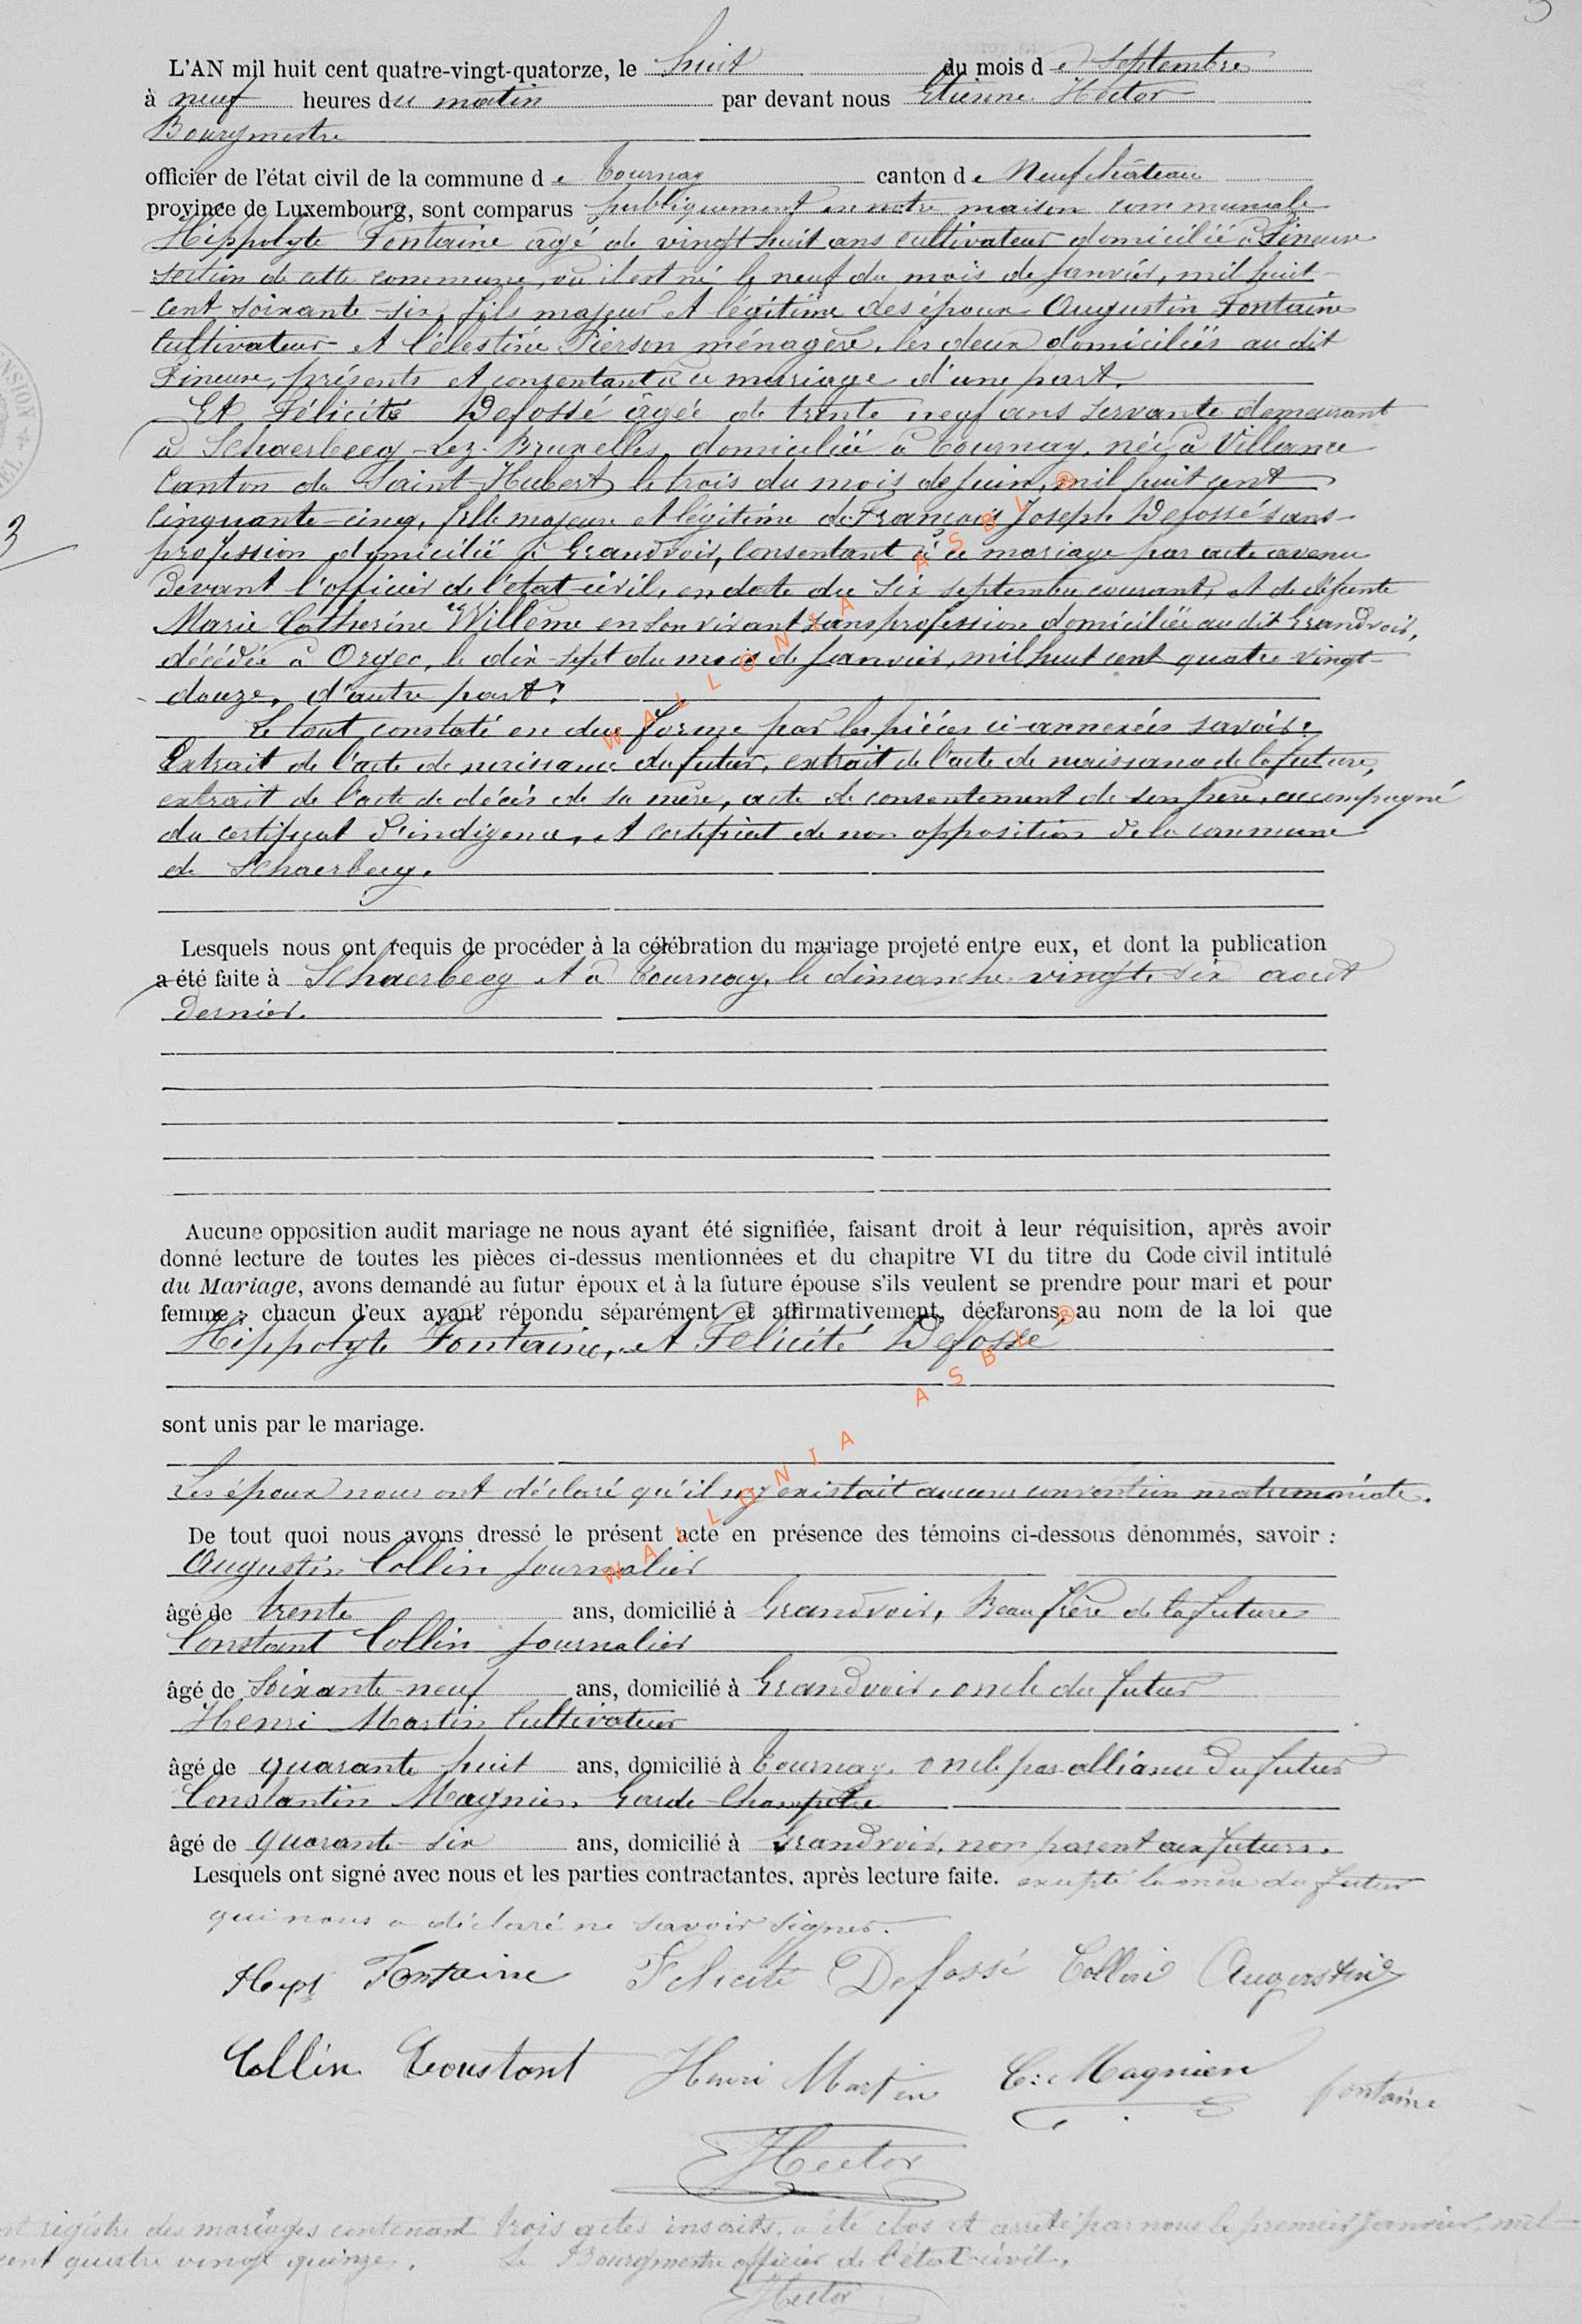 L'AN mil huit cent quatre-vingt-quatorze, le huit du mois de Septembre
à neuf heures du matin par devant nous Etienne Hector
Bourgmestre
officier de l'état civil de la commune de Tournay canton de Neufchâteau
province de Luxembourg, sont comparus publiquement en notre maison communale
Hippolyte Fontaine âgé de vingt huit ans cultivateur domicilié à Lineuse
section de cette commune, où il est né le neuf du mois de Janvier, mil huit
cent soixante-six, fils majeur et légitime des époux Augustin Fontaine
Cultivateur et Célestine Pierson ménagère, les deux domiciliés au dit
présents et consentant à ce mariage d'une part.
Et Félicité Defossé âgée de trente neuf ans Servante demeurant
à Schaerbecq-Lez-Bruxelles, domiciliée à Tournay, née à Villance
Canton de Saint-Hubert le trois du mois de Juin, mil huit cent
Cinquante-cinq, fille majeure et légitime de François Joseph Defossé sans
profession domicilié à Grandvoir, Consentant à ce mariage par acte avenu
devant l'officier de l'état-civil, en date du six septembre courant, et de défunte
Marie Catherine Willème en son vivant sans profession domiciliée au dit Grandvoir,
décédée à Orgeo, le dix-sept du mois de Janvier, mil huit cent quatre-vingt-
douze, d'autre part.
Le tout constaté en due forme par les pièces ci-annexées savoir:
Extrait de l'acte de naissance du futur, extrait de l'acte de naissance de la future,
extrait de l'acte de décès de sa mère, acte de consentement de son père, accompagné
du certificat d'indigence, et certificat de non opposition de la commune
de Schaerbecq.
Lesquels nous ont requis de procéder à la célébration du mariage projeté entre eux, et dont la publication
a été faite à Schaerbecq et à Tournay, le dimanche vingt-six août
dernier.
Aucune opposition audit mariage ne nous ayant été signifiée, faisant droit à leur réquisition, après avoir
donné lecture de toutes les pièces ci-dessus mentionnées et du chapitre VI du titre du Code civil intitulé
du Mariage, avons demandé au futur époux et à la future épouse s'ils veulent se prendre pour mari et pour
femme; chacun d'eux ayant répondu séparément et affirmativement, déclarons au nom de la loi que
Hippolyte Fontaine, et Félicité Defossé
sont unis par le mariage.
Les époux nous ont déclaré qu'il n'y existait aucune convention matrimoniale.
De tout quoi nous avons dressé le présent acte en présence des témoins ci-dessous dénommés, savoir :
Augustin Collin Journalier
âgé de trente ans, domicilié à Grandvoir, Beau frère de la future
Constant Collin Journalier
âgé de Soixante-neuf ans, domicilié à Grandvoir, oncle du futur
Henri Martin Cultivateur
âgé de quarante huit ans, domicilié à Tournay, oncle par alliance du futur
Constantin Magnien Garde-Champêtre
âgé de quarante-six ans, domicilié à Grandvoir, non parent aux futurs.
Lesquels ont signé avec nous et les parties contractantes, après lecture faite. excepté la mère du futur
qui nous a déclaré ne savoir signer.
Hypt Fontaine Felicité Defossé Collin Augustin
Collin Constant Henri Martin C: Magnien fontaine
EHector
registre des mariages contenant trois actes inscrits, a été clos et arrêté par nous le premier Janvier, mil
cent quatre vingt quinze. Le Bourgmestre officier de l'état-civil,
EHector
3
WALLONIA ASBL ®
WALLONIA ASBL ®